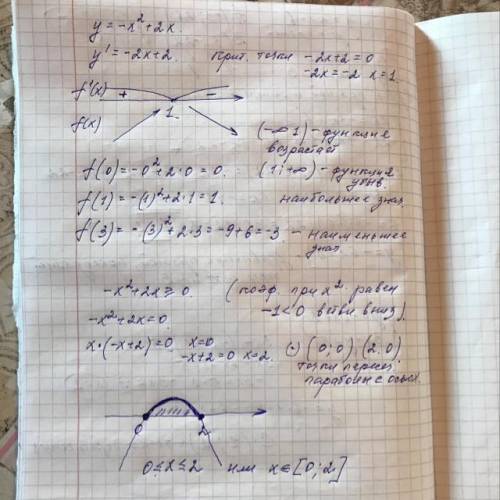 y = -x² + 2x
y' = -2x+2. крит. точки -2x+2=0
-2x=-2 x=1.
f'(x) + -
1
f(x)
(-∞ 1) - функция
возрастает
f(0) = -0²+2·0=0. (1; +∞) - функция
убыв.
f(1) = -(1)²+2·1=1. наибольшее знач.
f(3) = -(3)²+2·3=-9+6=-3 - наименьшее
знач.
-x²+2x≥0. (коэф. при x² равен
-1<0 ветви вниз).
-x²+2x=0.
x·(-x+2)=0 x=0 (·) (0;0) (2,0)
-x+2=0 x=2.
точки перес.
параболы с осью x.
0 2
0≤x≤2 или x∈[0;2]